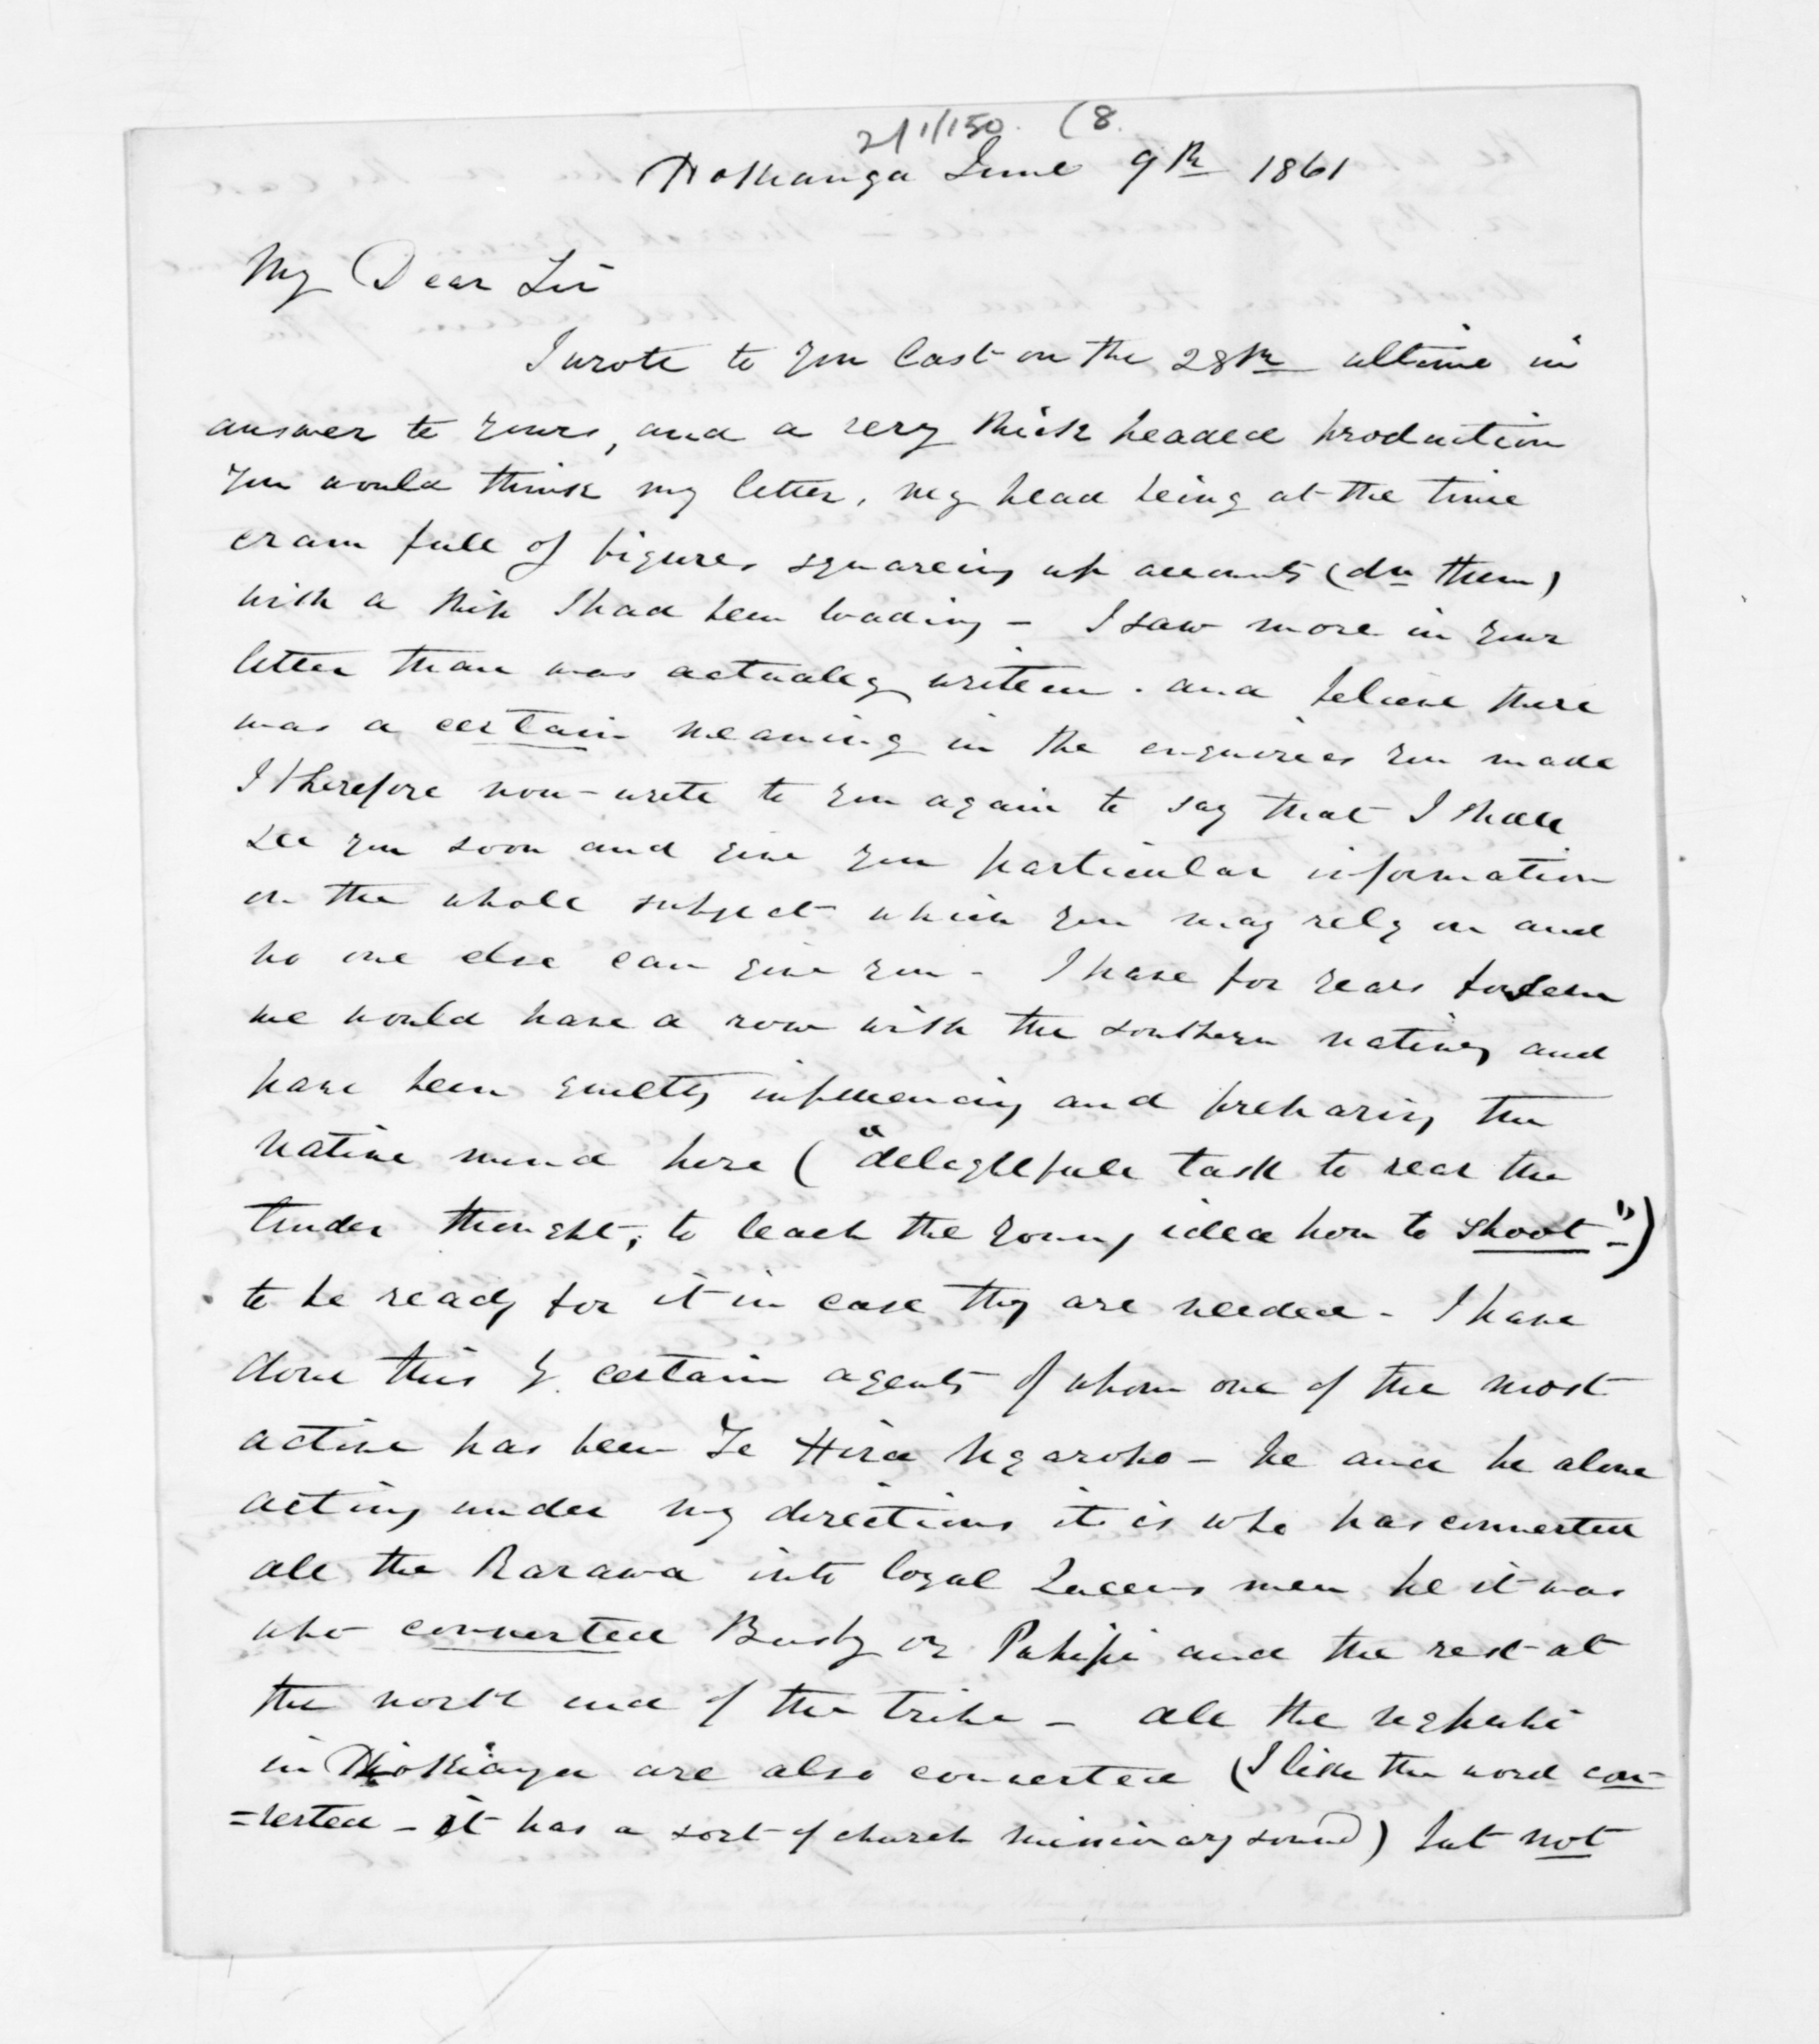 2/1/150. (8.
Hokianga June 9th 1861
My Dear Sir
I wrote to you last on the 28th ultimo in
answer to yours, and a very thick headed production
you would think my letter, my head being at the time
cram full of figures squareing up accounts (dn them)
with a ship I had been loading - I saw more in your
letter than was actualey writen. and believe there
was a certain meaning in the enquiries you made
I therefore now write to you again to say that I shall
see you soon and give you particular information
on the whole subject which you may rely on and
no one else can give you - I have for years
we would have a row with the southern natives and
have been quietly influencing and prepairing the
native mind here ("delightfull task to rear the
tender thought, to teach the young idea how to shoot")
to be ready for it in case they are needed - I have
done this by certain agents of whom one of the most
active has been Te Hira Ngaropo - he and he alone
acting under my directions it is who has converted
all the Rarawa into loyal Queens men he it was
who converted Busby or Puhipi and the rest at
the north end of the tribe - all the ngpuhi
in Hokianga are also converted (I like the word con-
=verted - it has a sort of church missionary sound) but not